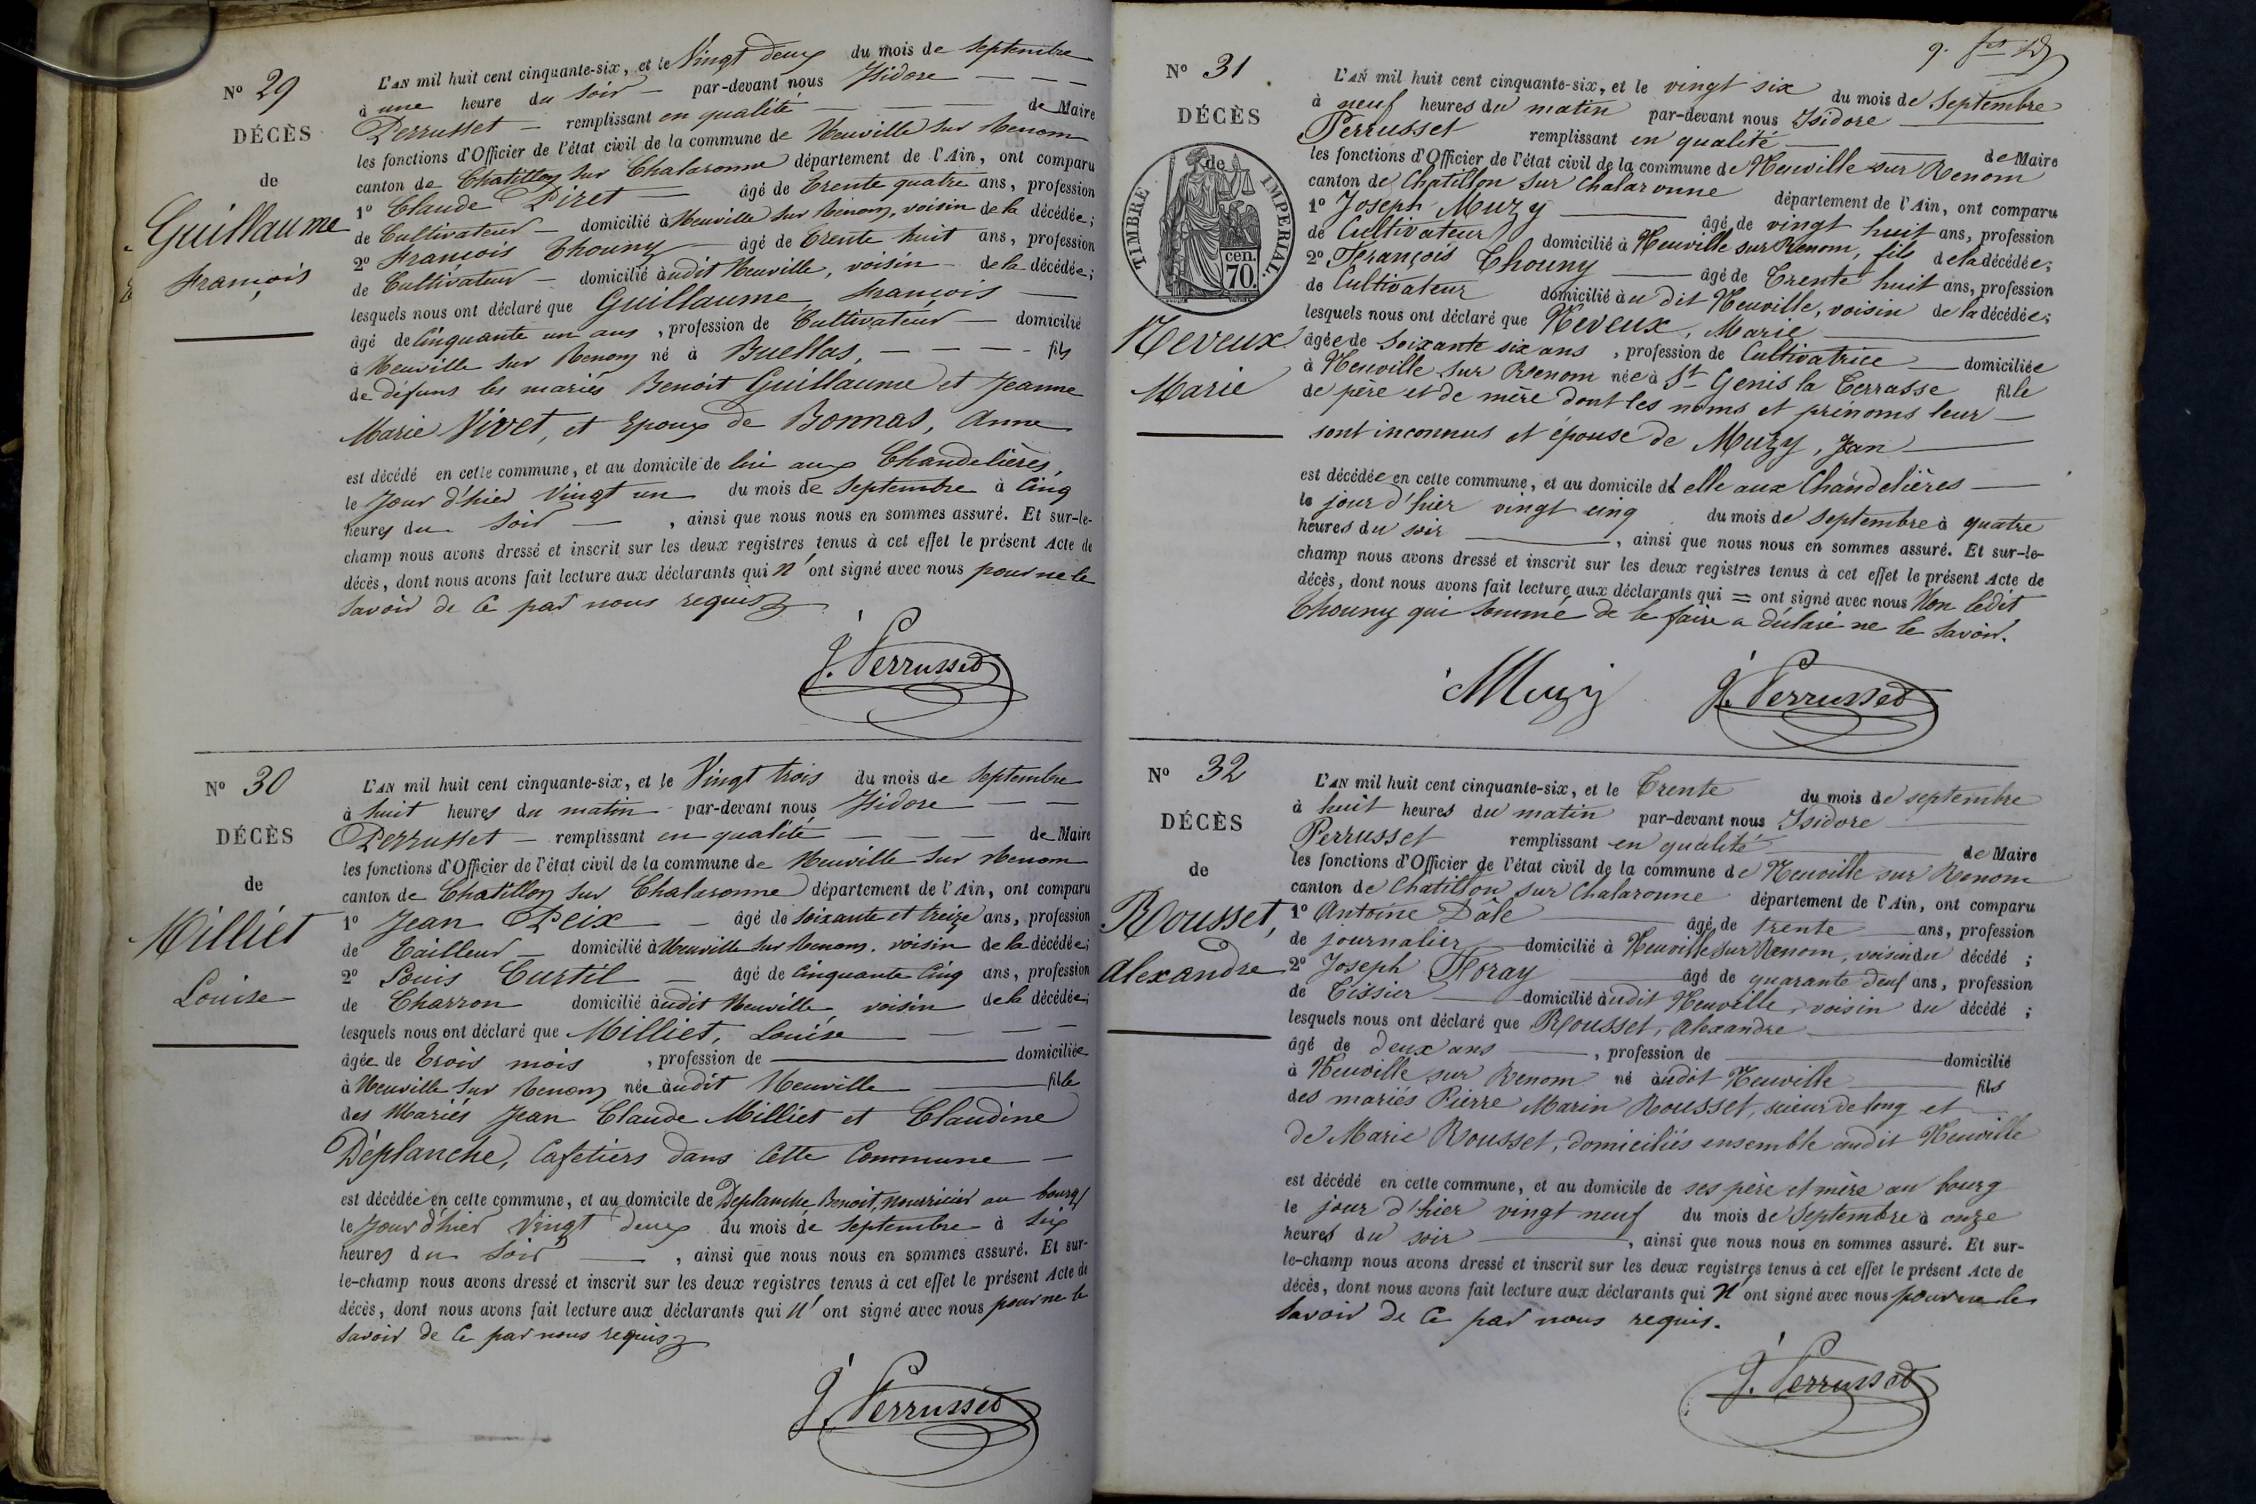 N° 29
DÉCÈS
de
Guillaume
François
L'AN mil huit cent cinquante-six, et le Vingt deux du mois de Septembre
à une heure du Soir — par-devant nous Isidore — — —
Perrusset — remplissant en qualité — — — de Maire
les fonctions d'Officier de l'état civil de la commune de Neuville sur Renom
canton de Chatillon sur Chalaronne département de l'Ain, ont comparu
1° Claude Piret — âgé de Trente quatre ans, profession
de Cultivateur — domicilié à Neuville sur Renom, voisin de la décédée;
2° François Chouny — âgé de Trente huit ans, profession
de Cultivateur — domicilié audit Neuville, voisin — de la décédée;
lesquels nous ont déclaré que Guillaume, François —
âgé de Cinquante un ans, profession de Cultivateur — domicilié
à Neuville sur Renom né à Buellas, — — — — fils
de défuns les mariés Benoit Guillaume et Jeanne
Marie Vivet, et Epoux de Bonnas, Anne
est décédé en cette commune, et au domicile de lui aux Chandelières,
le Jour d'hier Vingt un du mois de Septembre à Cinq
heures du Soir —, ainsi que nous nous en sommes assuré. Et sur-le-
champ nous avons dressé et inscrit sur les deux registres tenus à cet effet le présent Acte de
décès, dont nous avons fait lecture aux déclarants qui n'ont signé avec nous pour ne le
Savoir de Ce par nous requis
J. Perrusset
N° 30
DÉCÈS
de
Milliet
Louise
L'AN mil huit cent cinquante-six, et le Vingt trois du mois de Septembre
à huit heures du matin par-devant nous Isidore — —
Perrusset — remplissant en qualité — — — de Maire
les fonctions d'Officier de l'état civil de la commune de Neuville sur Renom
canton de Chatillon sur Chalaronne département de l'Ain, ont comparu
1° Jean Peix — âgé de soixante et treize ans, profession
de Tailleur — domicilié à Neuville sur Renom, voisin de la décédée;
2° Louis Curtil — âgé de Cinquante Cinq ans, profession
de Charron domicilié audit Neuville voisin de la décédée;
lesquels nous ont déclaré que Milliet, Louise — — —
âgée de Trois mois, profession de — domiciliée
à Neuville sur Renom née audit Neuville — fille
des Mariés Jean Claude Milliet et Claudine
Déplanche, Cafetiers dans Cette Commune —
est décédée en cette commune, et au domicile de Deplanche Benoit, nourricier au bourg
le Jour d'hier Vingt deux du mois de Septembre à Six
heures du Soir —, ainsi que nous nous en sommes assuré. Et sur-
le-champ nous avons dressé et inscrit sur les deux registres tenus à cet effet le présent Acte de
décès, dont nous avons fait lecture aux déclarants qui n'ont signé avec nous pour ne le
Savoir de Ce par nous requis
J. Perrusset
N° 31
DÉCÈS
TIMBRE IMPÉRIAL
de
70. cen.
Neveux
Marie
L'AN mil huit cent cinquante-six, et le vingt six du mois de Septembre
à neuf heures du matin par-devant nous Isidore —
Perrusset remplissant en qualité — de Maire
les fonctions d'Officier de l'état civil de la commune de Neuville sur Renom
canton de Chatillon sur Chalaronne département de l'Ain, ont comparu
1° Joseph Muzy — âgé de vingt huit ans, profession
de Cultivateur domicilié à Neuville sur Renom, fils de la décédée;
2° François Chouny — âgé de Trente huit ans, profession
de Cultivateur domicilié au dit Neuville, voisin de la décédée;
lesquels nous ont déclaré que Neveux, Marie —
âgée de soixante six ans, profession de Cultivatrice — domiciliée
à Neuville sur Renom née à St Genis la Terrasse fille
de père et de mère dont les noms et prénoms leur —
sont inconnus et epouse de Muzy, Jean —
est décédée en cette commune, et au domicile d'elle aux Chandelières —
le jour d'hier vingt cinq du mois de septembre à quatre
heures du soir —, ainsi que nous nous en sommes assuré. Et sur-le-
champ nous avons dressé et inscrit sur les deux registres tenus à cet effet le présent Acte de
décès, dont nous avons fait lecture aux déclarants qui = ont signé avec nous Non ledit
Chouny qui sommé de le faire a déclaré ne le Savoir.
Muzy J. Perrusset
N° 32
DÉCÈS
de
Rousset,
Alexandre
L'AN mil huit cent cinquante-six, et le Trente du mois de septembre
à huit heures du matin par-devant nous Isidore —
Perrusset remplissant en qualité — de Maire
les fonctions d'Officier de l'état civil de la commune de Neuville sur Renom
canton de Chatillon sur Chalaronne département de l'Ain, ont comparu
1° Antoine Dâle — âgé de trente — ans, profession
de journalier — domicilié à Neuville sur Renom, voisin du décédé;
2° Joseph Foray — âgé de quarante deux ans, profession
de Tissier — domicilié audit Neuville, voisin du décédé;
lesquels nous ont déclaré que Rousset, Alexandre —
âgé de deux ans —, profession de — domicilié
à Neuville sur Renom né audit Neuville — fils
des mariés Pierre Marin Rousset, scieur de long et —
de Marie Rousset, domiciliés ensemble audit Neuville
est décédé en cette commune, et au domicile de ses père et mère au bourg
le jour d'hier vingt neuf du mois de Septembre à onze
heures du soir —, ainsi que nous nous en sommes assuré. Et sur-
le-champ nous avons dressé et inscrit sur les deux registres tenus à cet effet le présent Acte de
décès, dont nous avons fait lecture aux déclarants qui n'ont signé avec nous pour ne le
Savoir de Ce par nous requis.
J. Perrusset